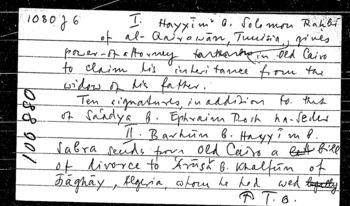 1080 J 6
I. Hayyīm B. Solomon Rahbi
of al-Qairawān, Tunisia, gives
power-of-attorney in Old Cairo
to claim his inheritance from the
widow of his father.
Ten signatures, in addition to that
of Sāadya B. Ephraim Rosh ha-Seder
II. Barhūn B. Hayyīm B.
Sabra sends from Old Cairo a bill
of divorce to B. Khalfūn of
Bāghāy, Algeria whom he had wed
T. B.